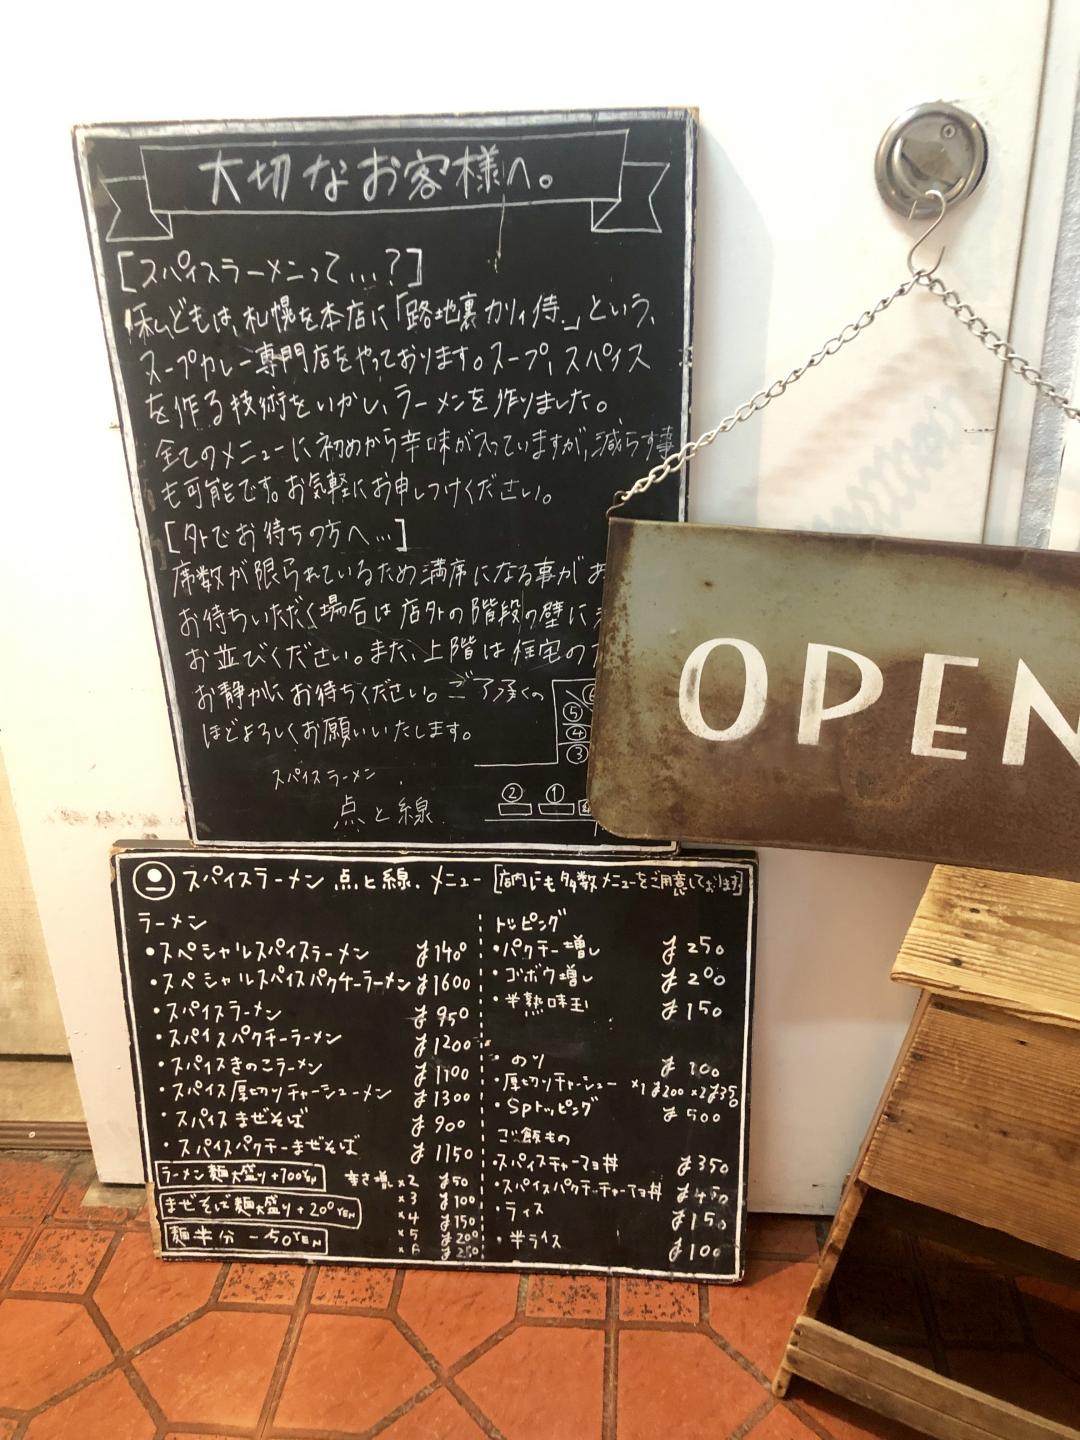 大切なお客様へ。
[スパイスラーメンって…?]
私どもは、札幌を本店に「路地裏カリィ侍.」という、
スープカレー専門店をやっております。スープ、スパイス
を作る技術をいかし、ラーメンを作りました。
全てのメニューに初めから辛味が入っていますが、減らす事
も可能です。お気軽にお申しつけください。
[外でお待ちの方へ…]
席数が限られているため満席になる事が
お待ちいただく場合は店外の階段の壁に
お並びください。また、上階は住宅の
お静かにお待ちください。ご了承くの
ほどよろしくお願いいたします。
⑥
⑤
④
③
② ①
スパイスラーメン
点と線.
OPEN
スパイスラーメン 点と線. メニュー [店内にも多数メニューをご用意しております]
ラーメン
・スペシャルスパイスラーメン ¥1400
・スペシャルスパイスパクチーラーメン ¥1600
・スパイスラーメン ¥950
・スパイスパクチーラーメン ¥1200
・スパイスきのこラーメン ¥1100
・スパイス厚切りチャーシューメン ¥1300
・スパイスまぜそば ¥900
・スパイスパクチーまぜそば ¥1150
ラーメン麺大盛り+100YEN
まぜそば麺大盛り+200YEN
麺半分 -50YEN
辛さ増 ×2 ¥50
×3 ¥100
×4 ¥150
×5 ¥200
×6 ¥250
トッピング
・パクチー増し ¥250
・ゴボウ増し ¥200
・半熟味玉 ¥150
・のり ¥100
・厚切りチャーシュー ×1 ¥200 ×2 ¥350
・Spトッピング ¥500
ご飯もの
・スパイスチャーマヨ丼 ¥350
・スパイスパクチーチャーマヨ丼 ¥450
・ライス ¥150
・半ライス ¥100